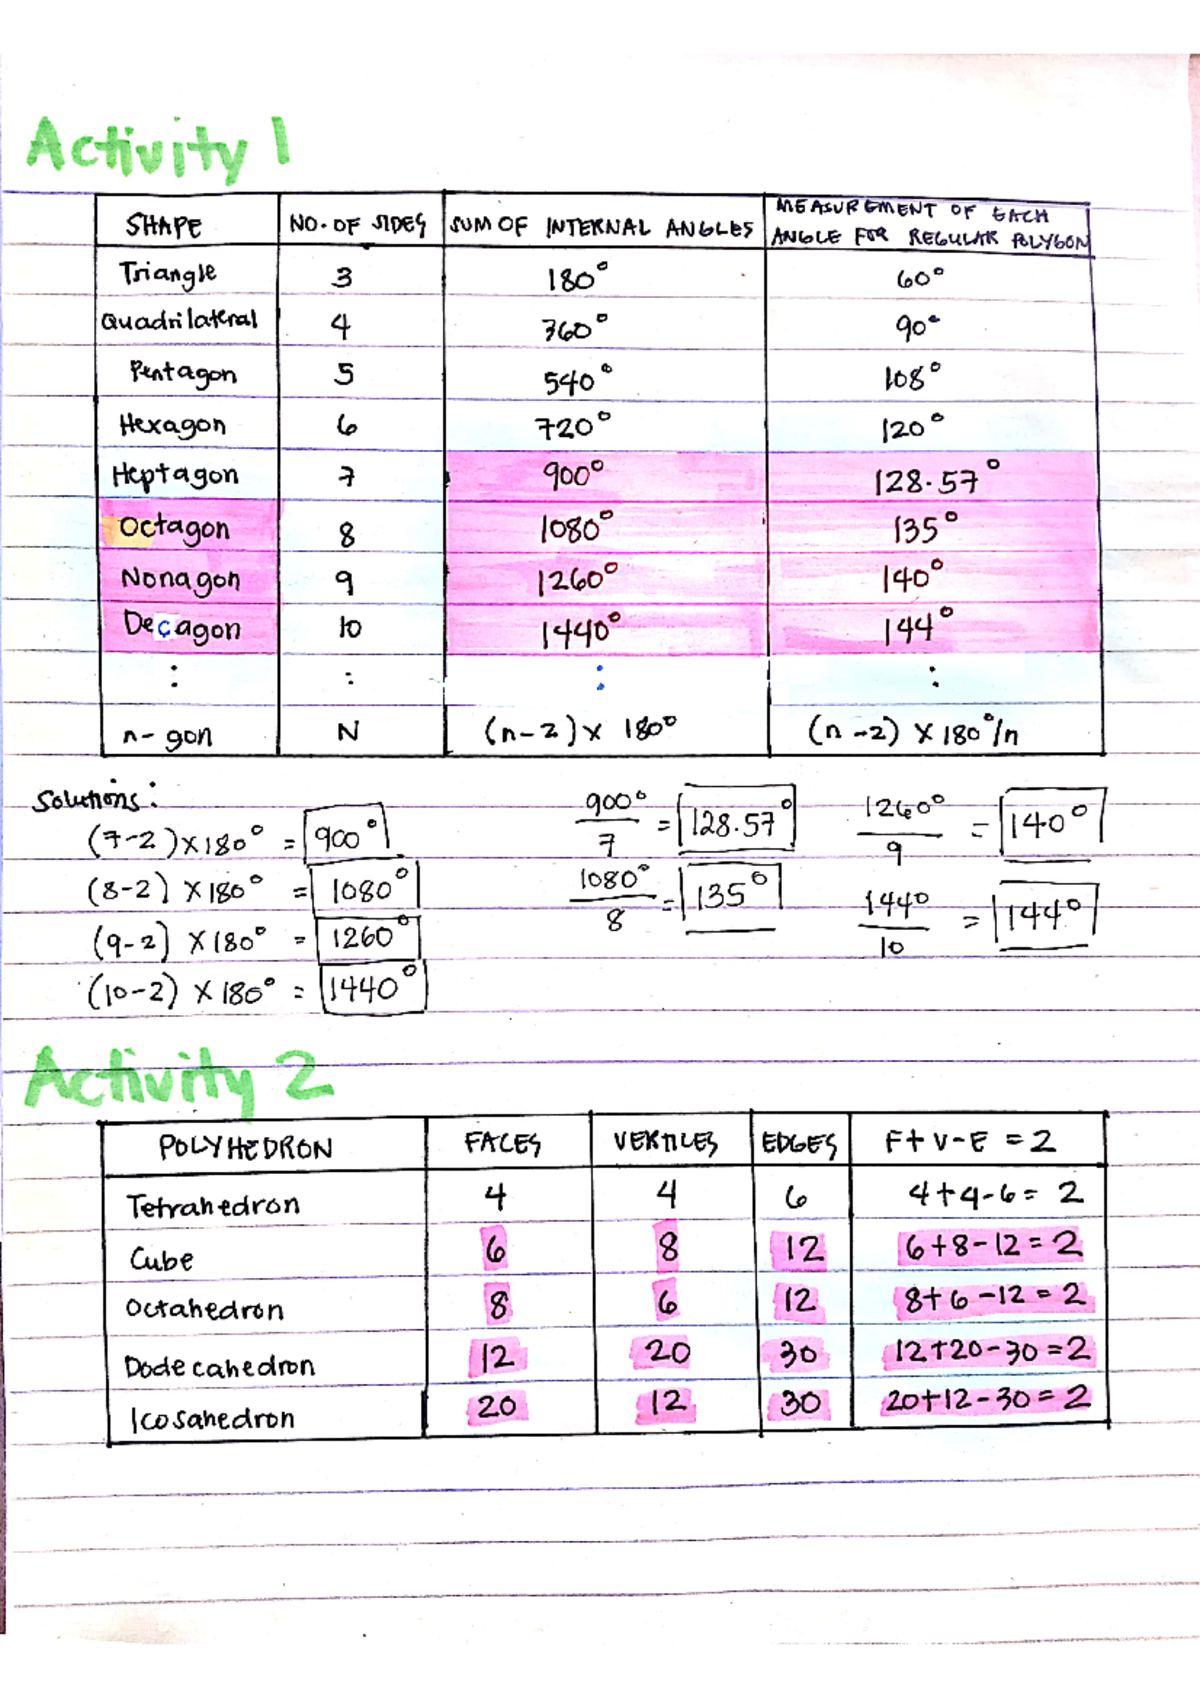 Activity 1
SHAPE NO. OF SIDES SUM OF INTERNAL ANGLES MEASUREMENT OF EACH ANGLE FOR REGULAR POLYGON
Triangle 3 180° 60°
Quadrilateral 4 360° 90°
Pentagon 5 540° 108°
Hexagon 6 720° 120°
Heptagon 7 900° 128.57°
Octagon 8 1080° 135°
Nonagon 9 1260° 140°
Decagon 10 1440° 144°
: : : :
n-gon N (n-2) x 180° (n-2) x 180°/n
Solutions:
(7-2) x 180° = 900° 900°/7 = 128.57° 1260°/9 = 140°
(8-2) x 180° = 1080° 1080°/8 = 135° 1440/10 = 144°
(9-2) x 180° = 1260°
(10-2) x 180° = 1440°
Activity 2
POLYHEDRON FACES VERTICES EDGES F+V-E = 2
Tetrahedron 4 4 6 4+4-6= 2
Cube 6 8 12 6+8-12=2
Octahedron 8 6 12 8+6-12=2
Dodecahedron 12 20 30 12+20-30=2
Icosahedron 20 12 30 20+12-30=2